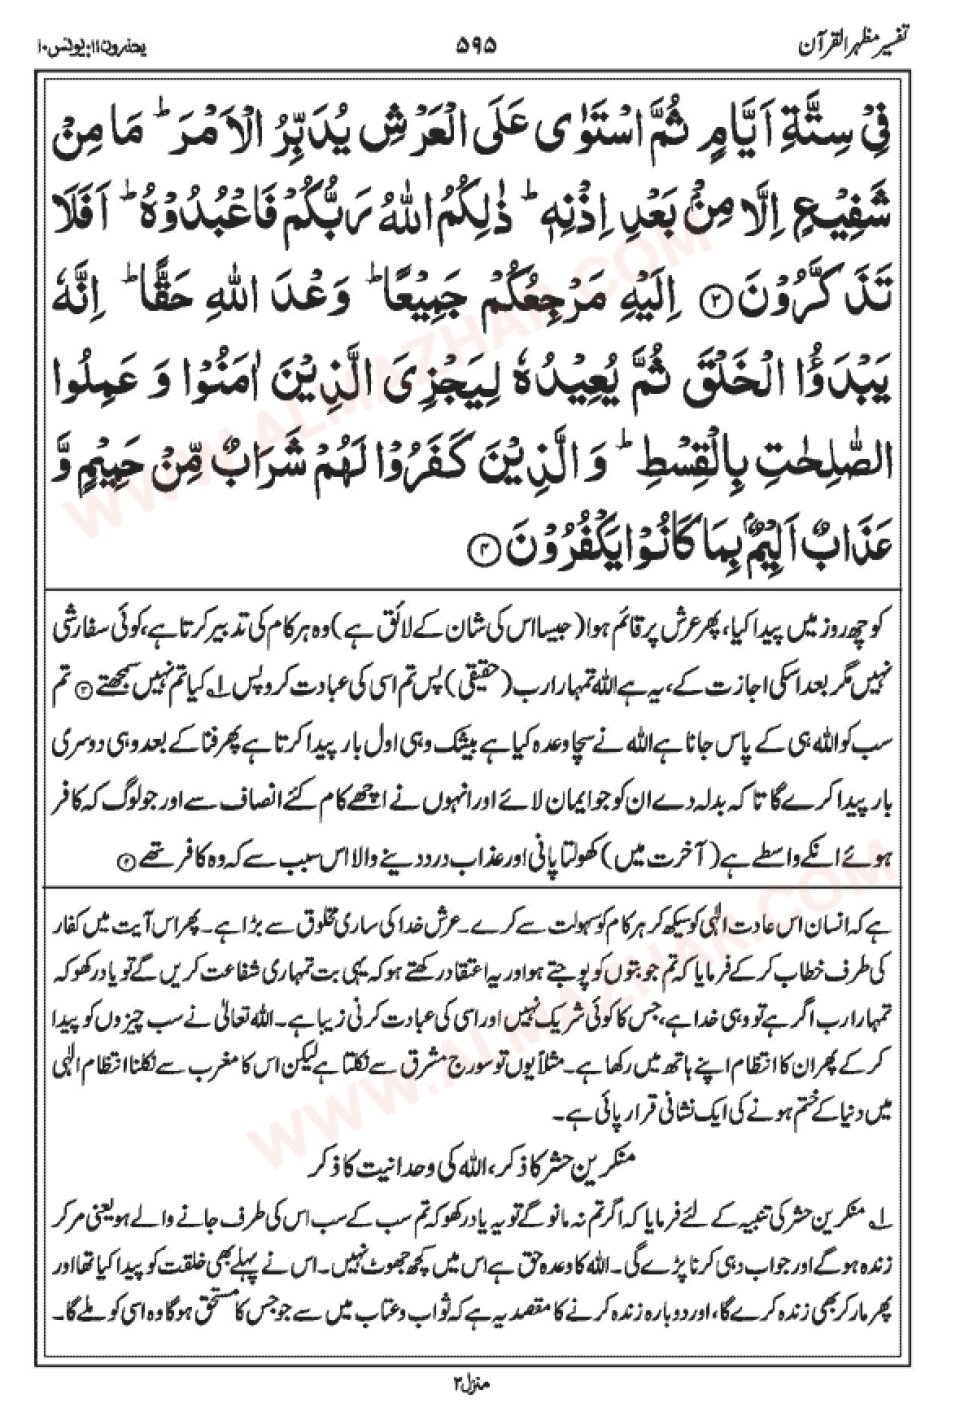 تفسیر مظہر القرآن
۵۹۵
یعتذرون ۱۱: یونس ۱۰
فِیْ سِتَّةِ اَیَّامٍ ثُمَّ اسْتَوٰی عَلَی الْعَرْشِ یُدَبِّرُ الْاَمْرَ ؕ مَا مِنْ
شَفِیْعٍ اِلَّا مِنْۢ بَعْدِ اِذْنِهٖ ؕ ذٰلِكُمُ اللهُ رَبُّكُمْ فَاعْبُدُوْهُ ؕ اَفَلَا
تَذَكَّرُوْنَ ۝۳ اِلَیْهِ مَرْجِعُكُمْ جَمِیْعًا ؕ وَعْدَ اللهِ حَقًّا ؕ اِنَّهٗ
یَبْدَؤُا الْخَلْقَ ثُمَّ یُعِیْدُهٗ لِیَجْزِیَ الَّذِیْنَ اٰمَنُوْا وَ عَمِلُوا
الصّٰلِحٰتِ بِالْقِسْطِ ؕ وَ الَّذِیْنَ كَفَرُوْا لَهُمْ شَرَابٌ مِّنْ حَمِیْمٍ وَّ
عَذَابٌ اَلِیْمٌۢ بِمَا كَانُوْا یَكْفُرُوْنَ ۝۴
کو چھ روز میں پیدا کیا، پھر عرش پر قائم ہوا (جیسا اس کی شان کے لائق ہے) وہ ہر کام کی تدبیر کرتا ہے، کوئی سفارشی
نہیں مگر بعد اسکی اجازت کے، یہ ہے اللہ تمہارا رب (حقیقی) پس تم اسی کی عبادت کرو پس ۱؎ کیا تم نہیں سمجھتے ۝۳ تم
سب کو اللہ ہی کے پاس جانا ہے اللہ نے سچا وعدہ کیا ہے بیشک وہی اول بار پیدا کرتا ہے پھر فنا کے بعد وہی دوسری
بار پیدا کرے گا تا کہ بدلہ دے ان کو جو ایمان لائے اور انہوں نے اچھے کام کئے انصاف سے اور جو لوگ کہ کافر
ہوئے انکے واسطے ہے (آخرت میں) کھولتا پانی اور عذاب درد دینے والا اس سبب سے کہ وہ کافر تھے ۝۴
ہے کہ انسان اس عادت الٰہی کو سیکھ کر ہر کام کو سہولت سے کرے۔ عرش خدا کی ساری مخلوق سے بڑا ہے۔ پھر اس آیت میں کفار
کی طرف خطاب کر کے فرمایا کہ تم جو بتوں کو پوجتے ہو اور یہ اعتقاد رکھتے ہو کہ یہی بت تمہاری شفاعت کریں گے تو یاد رکھو کہ
تمہارا رب اگر ہے تو وہی خدا ہے، جس کا کوئی شریک نہیں اور اسی کی عبادت کرنی زیبا ہے۔ اللہ تعالیٰ نے سب چیزوں کو پیدا
کر کے پھر ان کا انتظام اپنے ہاتھ میں رکھا ہے۔ مثلاً یوں تو سورج مشرق سے نکلتا ہے لیکن اس کا مغرب سے نکلنا انتظام الٰہی
میں دنیا کے ختم ہونے کی ایک نشانی قرار پائی ہے۔
منکرین حشر کا ذکر، اللہ کی وحدانیت کا ذکر
۱؎ منکرین حشر کی تنبیہ کے لئے فرمایا کہ اگر تم نہ مانو گے تو یہ یاد رکھو کہ تم سب کے سب اس کی طرف جانے والے ہو یعنی مر کر
زندہ ہو گے اور جواب دہی کرنا پڑے گی۔ اللہ کا وعدہ حق ہے اس میں کچھ جھوٹ نہیں۔ اس نے پہلے بھی خلقت کو پیدا کیا تھا اور
پھر مار کر بھی زندہ کرے گا، اور دوبارہ زندہ کرنے کا مقصد یہ ہے کہ ثواب و عتاب میں سے جو جس کا مستحق ہوگا وہ اسی کو ملے گا۔
منزل ۳
WWW.ALMAZHAR.COM
WWW.ALMAZHAR.COM